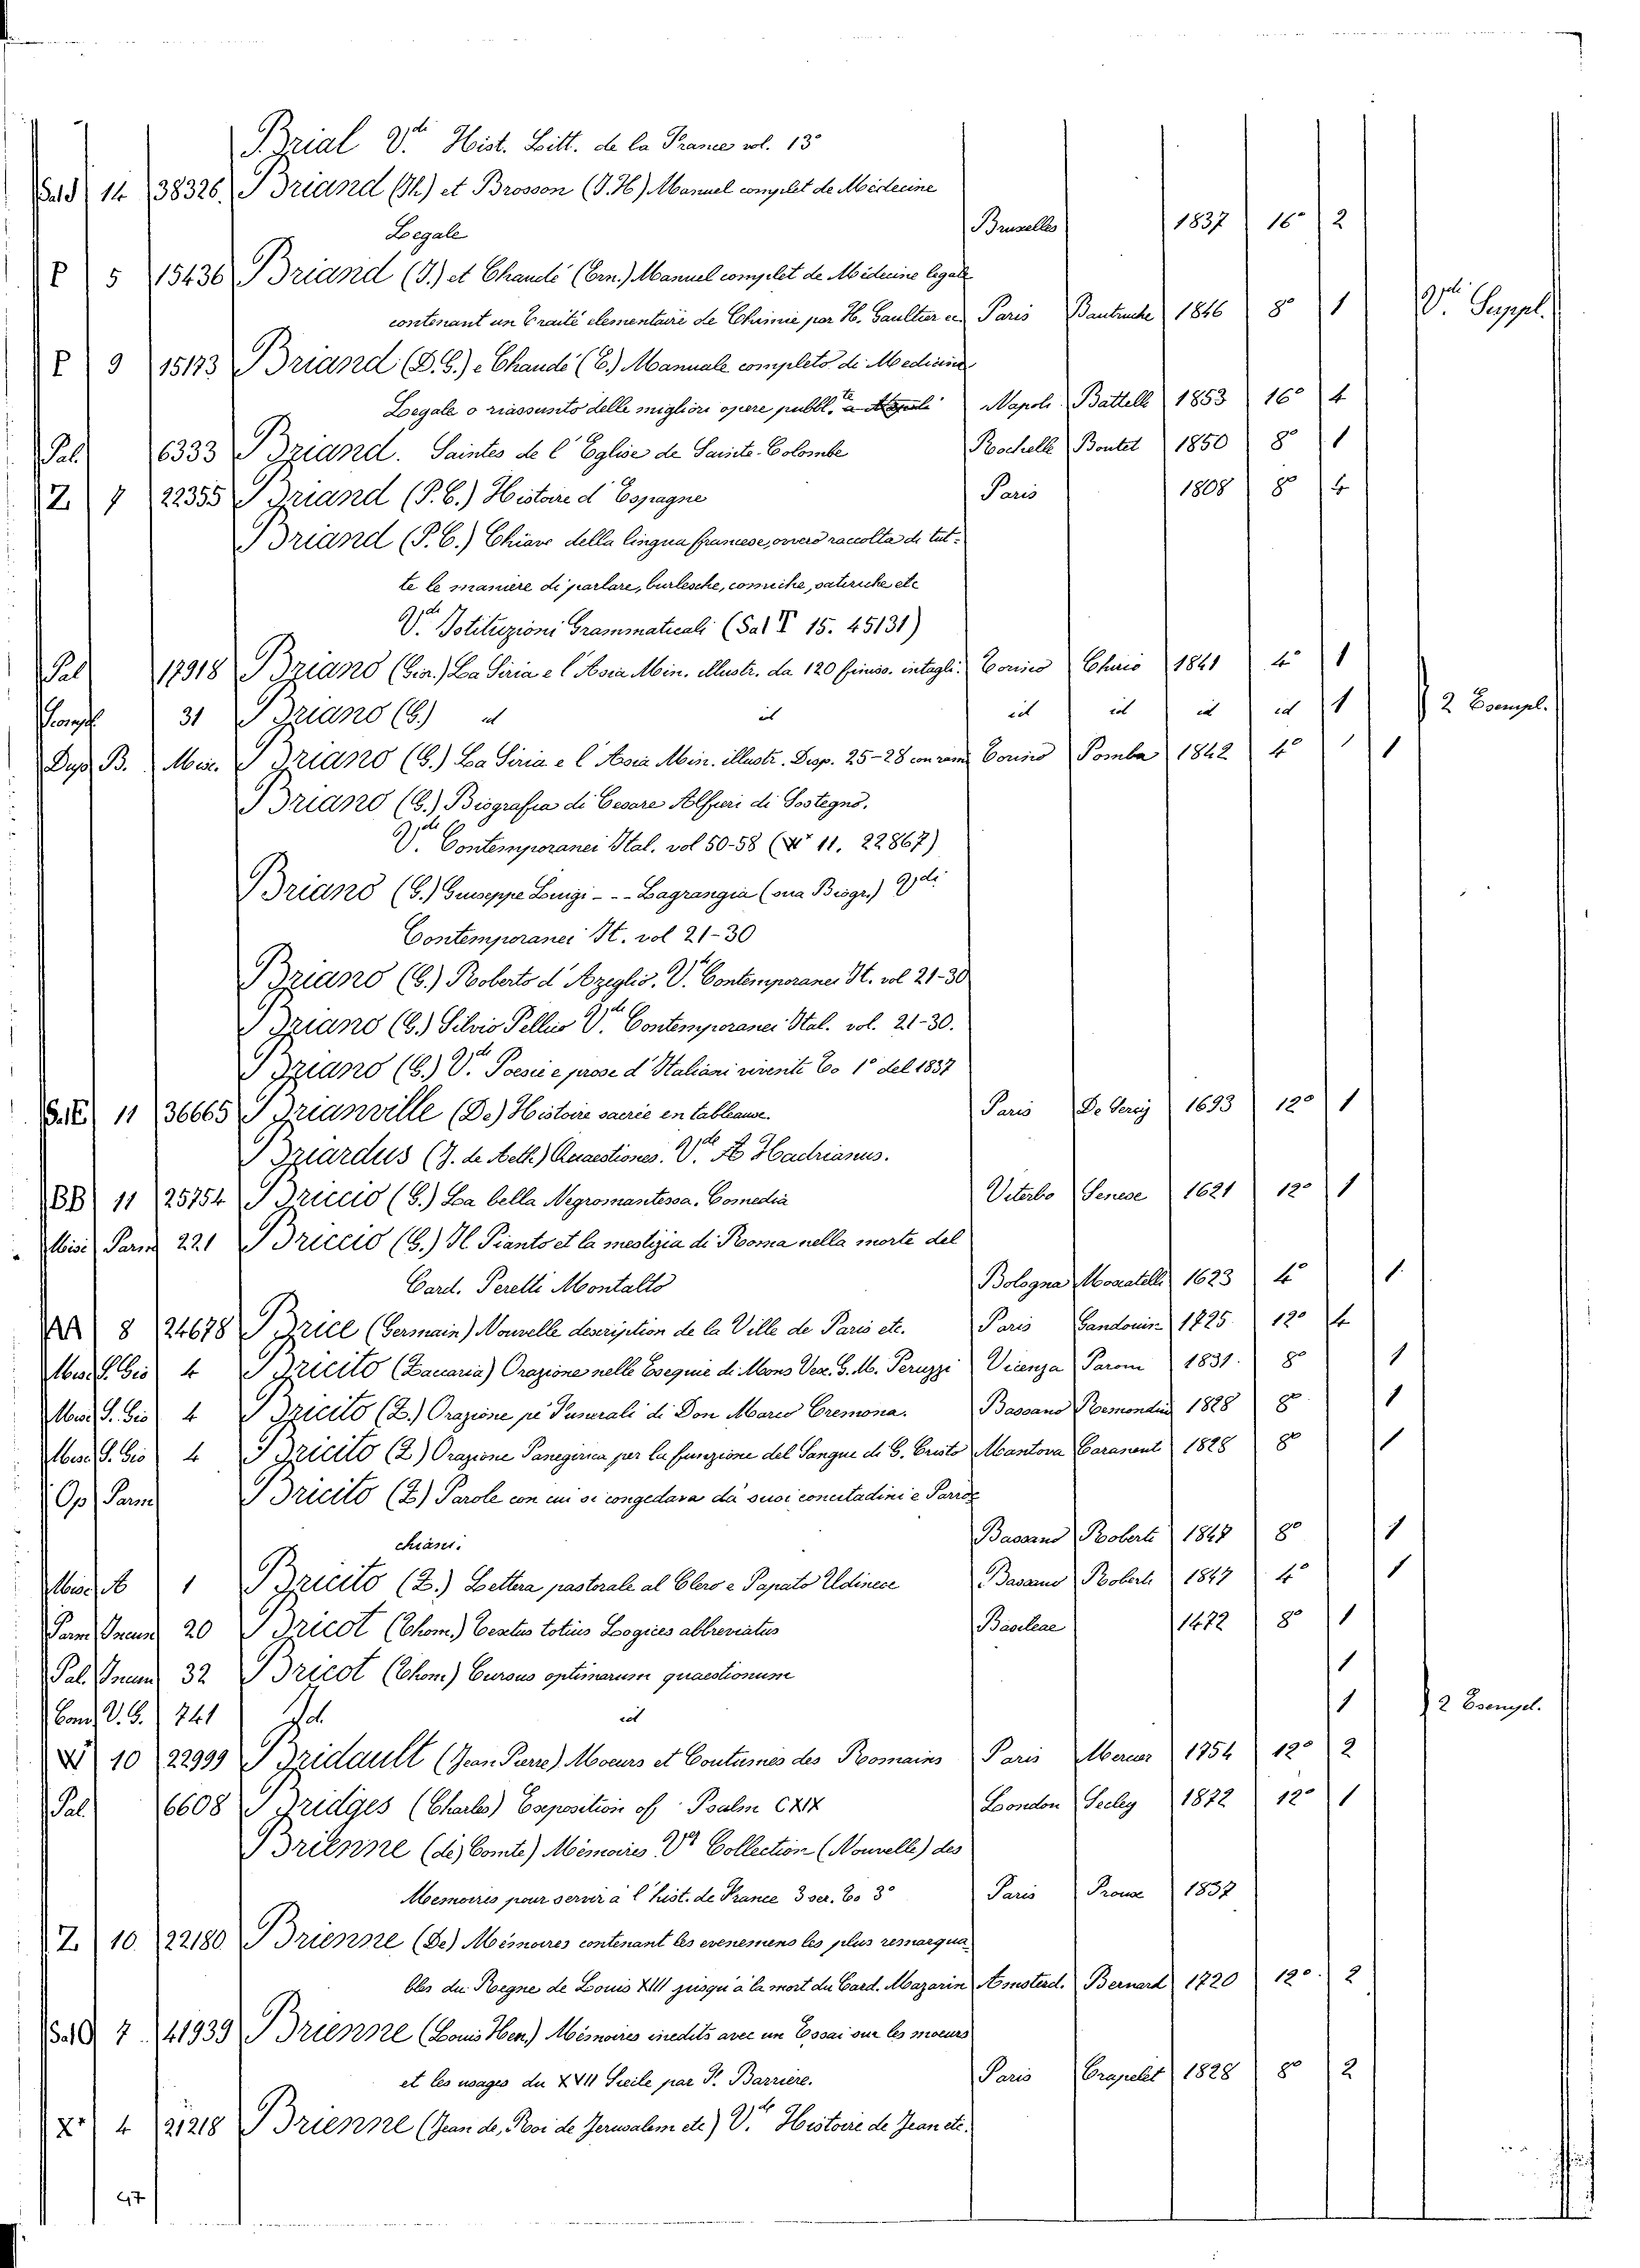 Brial V.di Hist. Litt. de la France vol. 13°
Sal 14 38326. Briand (Th) et Brosson (J. H) Manuel complet de Médecine
Legale Bruxelles 1837 16° 2
P 5 15436 Briand (J.) et Chaudé (Ern.) Manuel complet de Médecine legale
contenant un Traité elementaire de Chimie par H. Gaultier ec Paris 1846 8° 1 V.di Suppl.
P 9 15173 Briand (D. G.) e Chaudé (E.) Manuale completo di Medicina
Legale o riassunto delle migliori opere pubbl.te Napoli Battell 1853 16° 4
Pal. 6333 Briand. Saintes de l'Eglise de Sainte-Colombe Rochelle Boutet 1850 8° 1
Z. 7 22355 Briand (P. C.) Histoire d'Espagne Paris 1808 8° 4
Briand (P. C.) Chiave della lingua francese, ovvero raccolta di tut-
te le maniere di parlare, burlesche, comiche, satiriche etc
V.di Istituzioni Grammaticali (Sal T 15. 45131)
Pal 17918 Briano (Gior.) La Siria e l'Asia Min. illustr. da 120 finiss. intagli. Torino Chirio 1841 4° 1
31 Briano (G.) id id id id id id 1 2 Esempl.
Dup. B. Misc. Briano (G.) La Siria e l'Asia Min. illustr. Disp. 25-28 con rami Torino Pomba 1842 4° 1
Briano (G.) Biografia di Cesare Alfieri di Sostegno.
V.di Contemporanei Ital. vol 50-58 (11. 22867)
Briano (G.) Giuseppe Luigi - - - Lagrangia (sua Biogr.) V.di
Contemporanei It. vol 21-30
Briano (G.) Roberto d'Azeglio. V.di Contemporanei It. vol 21-30
Briano (G.) Silvio Pellico V.di Contemporanei Ital. vol. 21-30.
Briano (G.) V.di Poesie e prose d'Italiani viventi To 1° del 1837
Sal E 11 36665 Brianville (De) Histoire sacrée en tableaux. Paris De Sercy 1693 12° 1
Briardus (J. de Aeth) Quaestiones. V.de Hadrianus.
BB 11 25754 Briccio (G.) La bella Negromantessa. Comedia Viterbo Senese 1621 12° 1
Misc Parm 221 Briccio (G.) Il Pianto et la mestizia di Roma nella morte del
Card. Peretti Montalto Bologna Moscatelli 1623 4° 1
AA 8 24678 Brice (Germain) Nouvelle description de la Ville de Paris etc. Paris Gandouin 1725 12° 4
Misc. S. Gio 4 Bricito (Zaccaria) Orazione nelle Esequie di Mons Vesc. G. M. Peruzzi Vicenza Paroni 1831. 8° 1
Misc. S. Gio 4 Bricito (Z.) Orazione pe' Funerali di Don Marco Cremona. Bassano Remondini 1828 8° 1
Misc. S. Gio 4 Bricito (Z) Orazione Panegirica per la funzione del Sangue di G. Cristo Mantova Caranenti 1828 8° 1
Op Parm Bricito (Z) Parole con cui si congedava da' suoi concittadini e Parroc
chiani. Bassano Roberti 1847 8° 1
Misc. A 1 Bricito (Z.) Lettera pastorale al Clero e Popolo Udinese Bassano Roberti 1847 4° 1
Parm Incun 20 Bricot (Thom.) Textus totius Logices abbreviatus Basileae 1472 8° 1
Pal. Incun 32 Bricot (Thom) Cursus optimarum quaestionum 1
Com. V. E. 741 Id. id 1 2 Esempl.
10 22999 Bridault (Jean Pierre) Moeurs et Coutumes des Romains Paris Mercier 1754 12° 2
Pal. 6608 Bridges (Charles) Exposition of Psalm CXIX London Seeley 1872 12° 1
Brienne (de) Comte) Mémoires V.di Collection (Nouvelle) des
Memoires pour servir à l'hist. de France 3 ser. To 3° Paris Proux 1837
Z. 10. 22180 Brienne (De) Mémoires contenant les evenemens les plus remarqua-
bles du Regne de Louis XIII jusqu'à la mort du Card. Mazarin Amsterd. Bernard 1720 12° 2
Sal O 7. 41939 Brienne (Louis Hen.) Mémoires inedits avec un Essai sur les moeurs
et les usages du XVII Siecle par F. Barrière. Paris Crapelet 1828 8° 2
X 4 21218 Brienne (Jean de, Roi de Jerusalem etc) V.de Histoire de Jean etc.
47